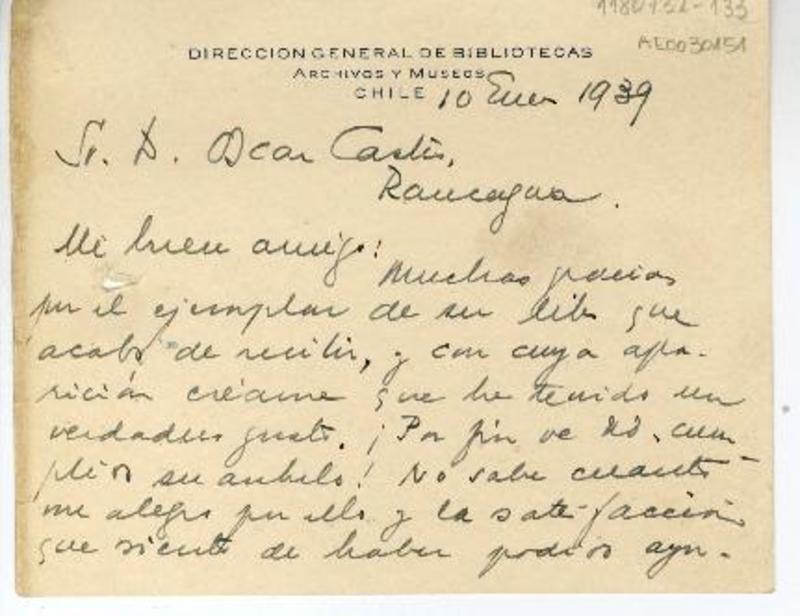 AE0030151
DIRECCION GENERAL DE BIBLIOTECAS
ARCHIVOS Y MUSEOS
CHILE 10 Enero 1939
Sr. D. Oscar Castro,
Rancagua.
Mi buen amigo:
Muchas gracias
por el ejemplar de su libro que
acabo de recibir, y con cuya apa-
rición créame que he tenido un
verdadero gusto. ¡Por fin ve Ud. cum-
plido su anhelo! No sabe cuanto
me alegro por ello y la satisfacción
que siento de haber podido ayu-